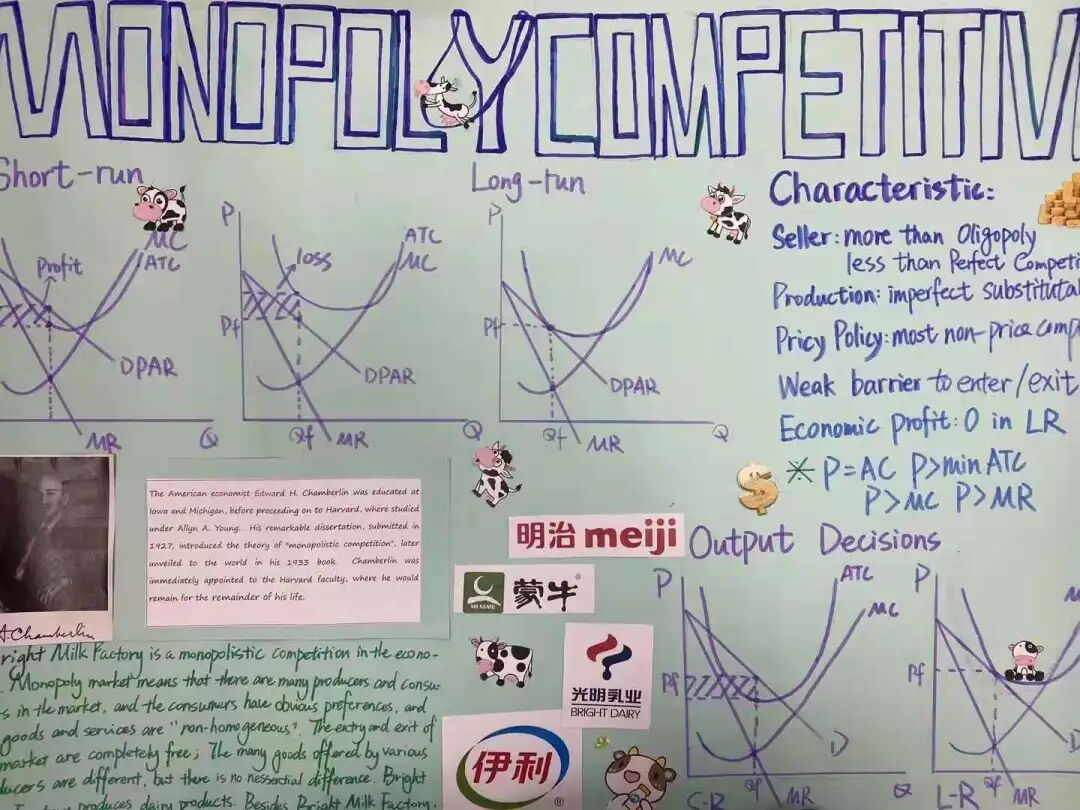 MONOPOLY COMPETITIV
Short-run
MC
ATC
Profit
DPAR
MR
Q
P
loss
ATC
MC
Pf
DPAR
Qf
MR
Q
Long-run
P
MC
Pf
DPAR
Qf
MR
Q
Characteristic:
Seller: more than Oligopoly
less than Perfect Competi
Production: imperfect substitutal
Pricy Policy: most non-price comp
Weak barrier to enter/exit
Economic profit: 0 in LR
* P=AC P>min ATC
P>MC P>MR
The American economist Edward H. Chamberlin was educated at
Iowa and Michigan, before proceeding on to Harvard, where studied
under Allyn A. Young. His remarkable dissertation, submitted in
1927, introduced the theory of "monopolistic competition", later
unveiled to the world in his 1933 book. Chamberlin was
immediately appointed to the Harvard faculty, where he would
remain for the remainder of his life.
A. Chamberlin
right Milk Factory is a monopolistic competition in the econo-
. Monopoly market means that there are many producers and consu-
s in the market, and the consumers have obvious preferences, and
goods and services are "non-homogeneous". The entry and exit of
market are completely free; The many goods offered by various
ducers are different, but there is no nessertial difference. Bright
produces dairy products. Besides Bright Milk Factory,
明治 meiji
蒙牛
MENGNIU
光明乳业
BRIGHT DAIRY
伊利
Output Decisions
P
ATC
MC
Pf
D
Qf
MR
Q
S-R
P
M
Pf
D
Qf
MR
L-R